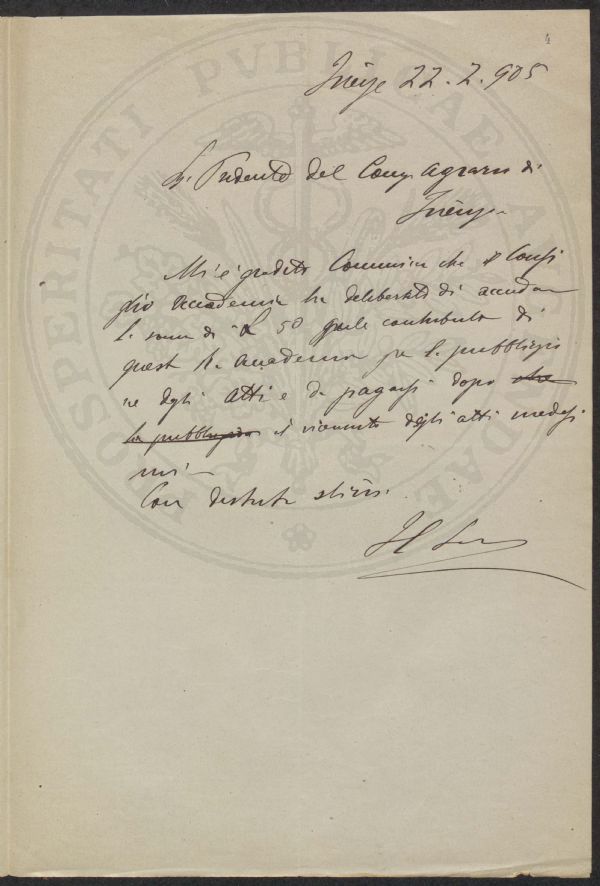 4
Firenze 22. 2. 905
Sig. Presidente del Comizio agrario di
Firenze
Mi è gradito comunicare che il Consi
glio accademico ha deliberato di accordare
la somma di L 50 quale contributo di
questa R. Accademia per la pubblicazio
ne degli atti e da pagarsi dopo
la pubblicazione il ricevimento degli atti medesi
mi —
Con distinta stima
Il
PROSPERITATI PUBLICAE AUGENDAE